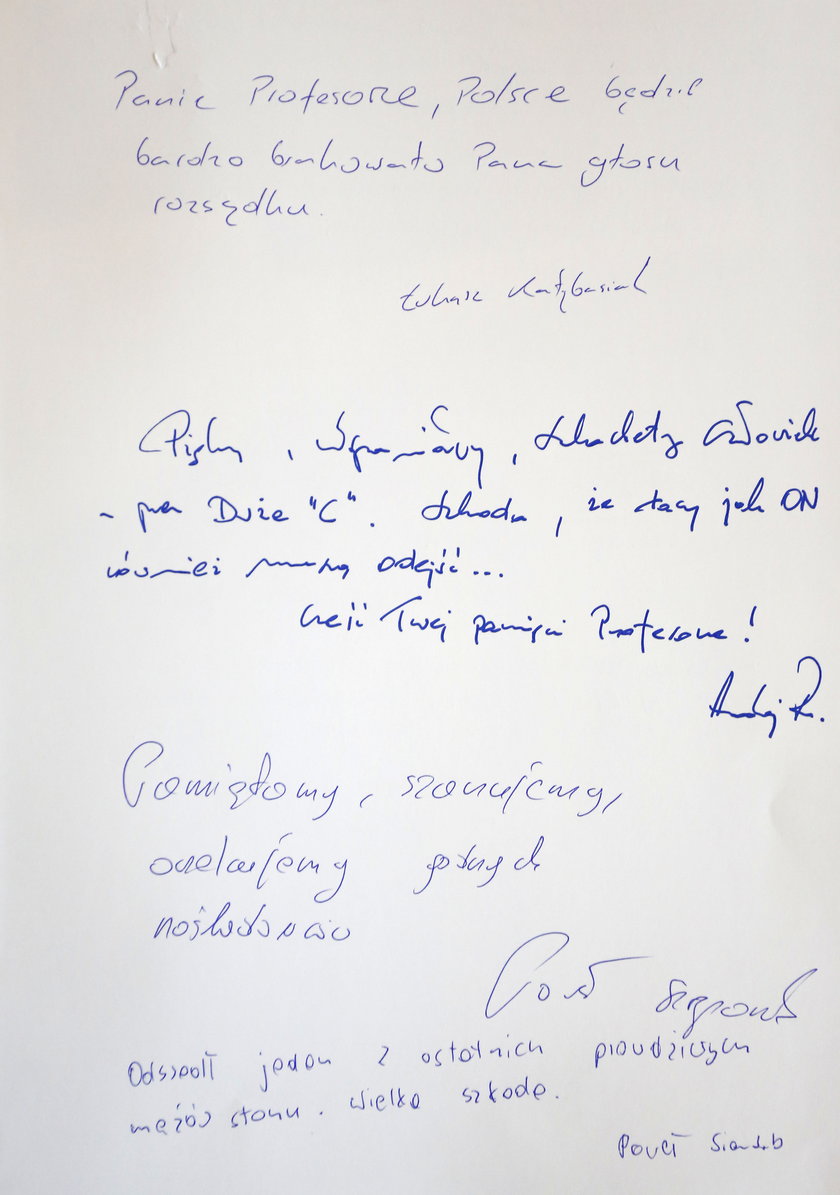 Panie Profesorze, Polsce będzie
bardzo brakowało Pana głosu
rozsądku.
Łukasz
Piękny, wspaniały, szlachetny człowiek
- przez Duże "C". Szkoda, że tacy jak ON
również muszą odejść...
Cześć Twej pamięci Profesorze!
Andrzej R.
Pamiętamy, szanujemy,
oczekujemy godnych
naśladowców
Odszedł jeden z ostatnich prawdziwych
mężów stanu. Wielka szkoda.
Paweł